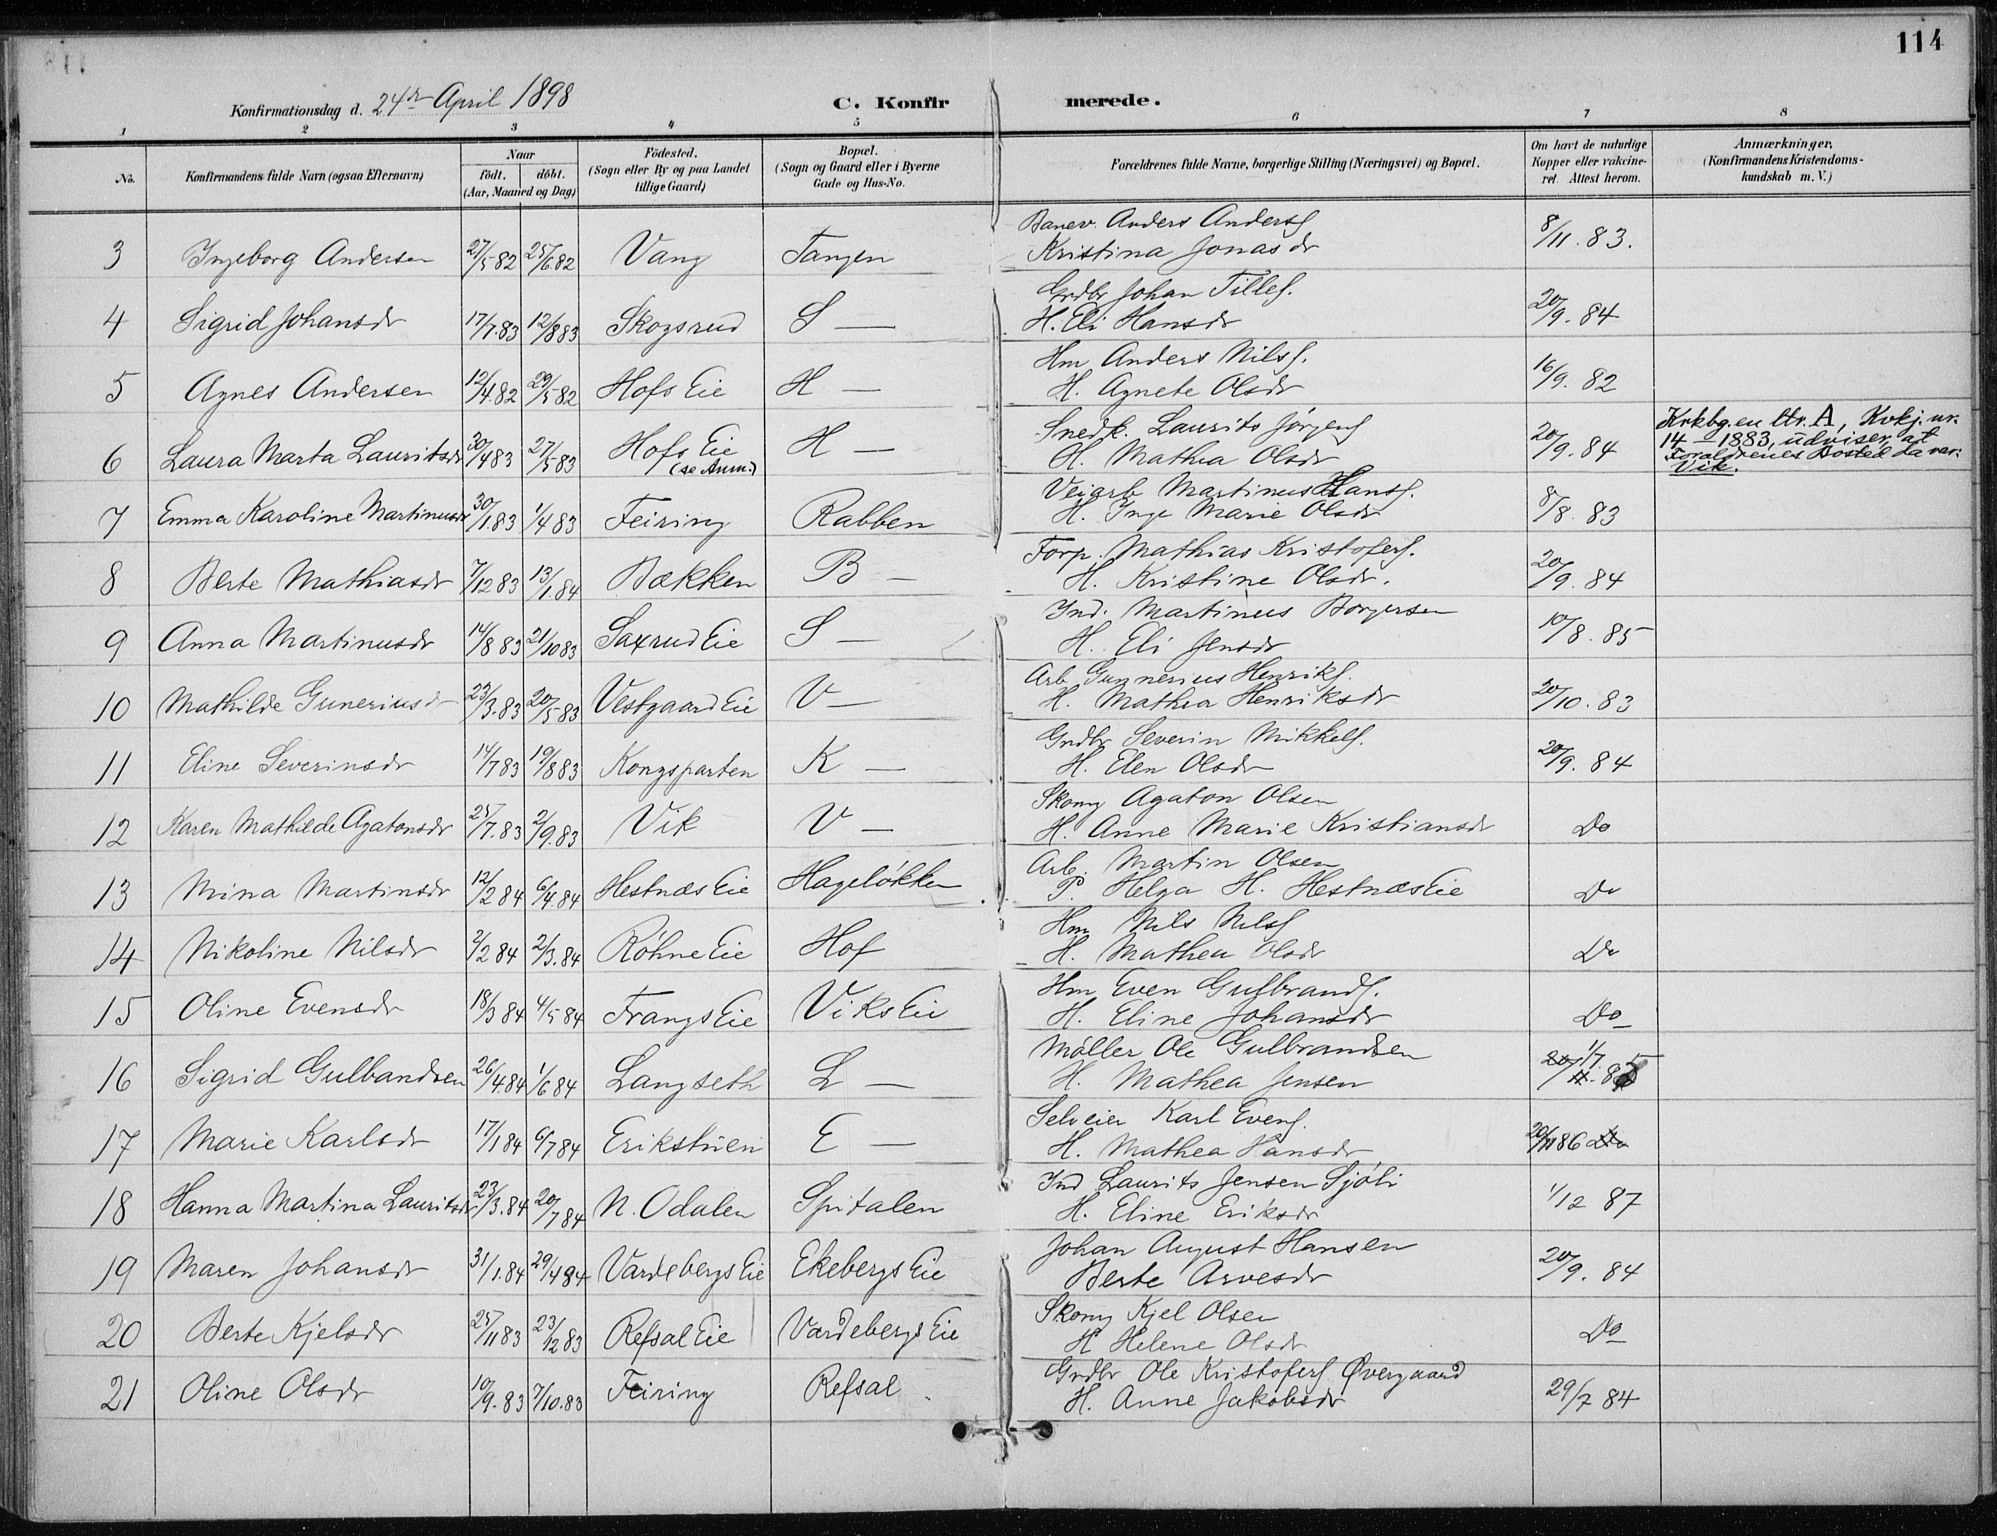 114
Konfirmationsdag d. 24de April 1898
C. Konfirmerede.
1 2 3 4 5 6 7 8
No. Konfirmandens fulde Navn (ogsaa Efternavn) Naar født. døbt. (Aar, Maaned og Dag) Födested. (Sogn eller By og paa Landet tillige Gaard) Bopæl. (Sogn og Gaard eller i Byerne Gade og Hus-No. Forældrenes fulde Navne, borgerlige Stilling (Næringsvei) og Bopæl. Om havt de naturlige Kopper eller vakcineret. Attest herom. Anmærkninger, (Konfirmandens Kristendomskundskab m. V.)
3 Ingeborg Andersen 27/5 82 25/6 82 Vang Tangen Banev. Anders Anders. 8/11. 83.
Kristina Jonasdr
4 Sigrid Johansdr 17/7 83 12/8 83 Skogsrud S — Grdbr Johan Tillefs. 20/9. 84
H. Eli Hansdr
5 Agnes Andersen 12/4 82 29/5 82 Hofs Eie H — Hm Anders Nilsf. 16/9. 82
H. Agnete Olsdr
6 Laura Marta Lauritsdr 30/4 83 27/5 83 Hofs Eie (se Anm.) H — Snedk. Laurits Jörgens 20/9. 84 Krkbg.en ltr. A, Kvkj. nr. 14 – 1883, udviser, at Forældrenes Bosted da var: Vik.
H. Mathea Olsdr
7 Emma Karoline Martinusdr 30/1. 83 1/4 83 Feiring Rabben Veiarb Martinus Hansf. 8/8. 83
H. Inge Marie Olsdr
8 Berte Mathiasdr 7/12 83 13/1. 84 Bækken B — Forp. Mathias Kristofers. 20/9. 84
H. Kristine Olsdr.
9 Anna Martinusdr 14/8 83 21/10 83 Saxrud Eie S — Ind. Martinus Borgersen 10/8. 85
H. Eli Jensdr
10 Mathilde Guneriusdr 23/3. 83 20/5 83 Vestgaard Eie V — Arb Gunnerius Henriks. 30/10. 83
H. Mathea Henriksdr
11 Eline Severinsdr 14/7 83 19/8 83 Kongsparten K — Grdbr Severin Mikkels. 20/9. 84
H. Elen Olsdr
12 Karen Mathilde Agatonsdr 25/7. 83 2/9. 83 Vik V — Skomg Agaton Olsen Do
H. Anne Marie Kristiansdr
13 Mina Martinsdr 12/2 84 6/4. 84 Hestnæs Eie Hageløkken Arb. Martin Olsen Do
P. Helga H. Hestnæs Eie
14 Nikoline Nilsdr 2/2 84 2/3. 84 Röhne Eie Hof Hm Nils Nilsf Do
H. Mathea Olsdr
15 Oline Evensdr 18/3 84 4/5 84 Frangs Eie Viks Eie Hm Even Gulbrands. Do
H. Eline Johansdr
16 Sigrid Gulbandsen 26/4. 84 1/6 84 Langseth L — Möller Ole Gulbrandsen 1/7. 85
H. Mathea Jensen
17 Marie Karlsdr 17/1 84 6/7 84 Erikstuen E — Selveier Karl Evens. 20/11 86 Do
H. Mathea Hansdr
18 Hanna Martina Lauritsdr 23/3. 84 20/7 84 N. Odalen Spitalen Ind Laurits Jensen Sjöli 1/12 87
H. Eline Eriksdr
19 Maren Johansdr 31/1. 84 29/4 84 Vardebergs Eie Ekebergs Eie Johan August Hansen 20/9. 84
Berte Arvesdr
20 Berte Kjelsdr 25/11 83 23/12 83 Refsal Eie Vardebergs Eie Skomg Kjel Olsen Do
H Helene Olsdr
21 Oline Olsdr 10/9. 83 7/10. 83 Feiring Refsal Grdbr Ole Kristofers Øvergaard 29/7 84
H. Anne Jakobsdr